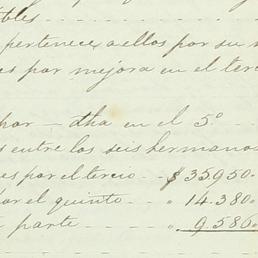 bles
pertenece a ellos por su
es por mejora en el terc
por — dha en el 5º —
entre los seis hermanos
es por el tercio — $ 35950.
or el quinto — „ 14.380.
parte — „ 9.586.